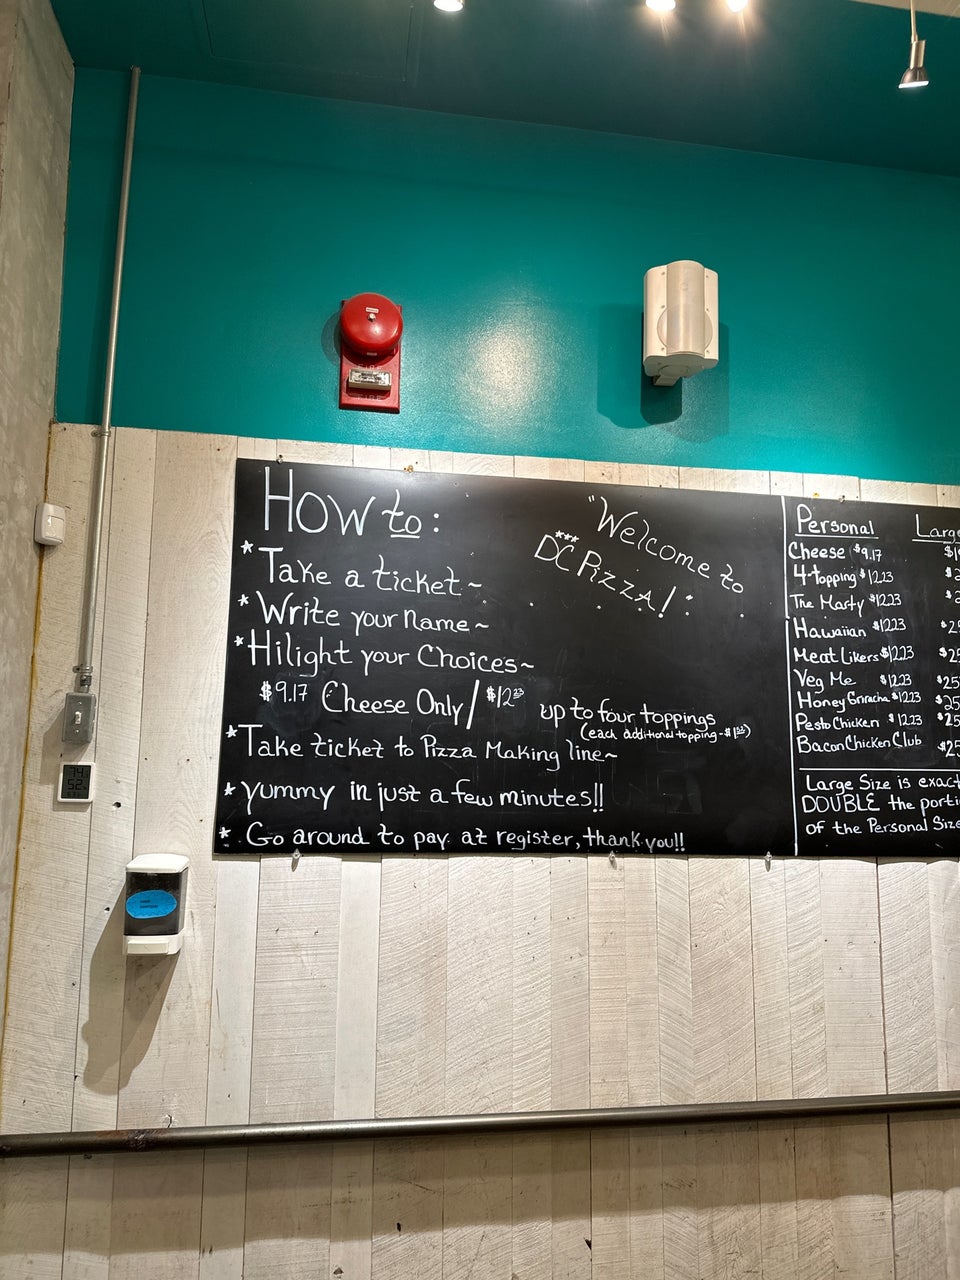 HOW to:
*Take a ticket~
*Write your Name~
*Hilight your Choices~
$9.17 Cheese Only/$12²³ up to four toppings
(each additional topping-$1⁵³)
*Take ticket to Pizza Making line~
*yummy in just a few minutes!!
* Go around to pay at register, thank you!!
"Welcome to
***
DC Pizza!"
Personal Large
Cheese $9.17
4-topping $12.23
The Marty $12.23
Hawaiian $12.23
Meat Likers $12.23
Veg Me $12.23
Honey Sriracha $12.23
Pesto Chicken $12.23
Bacon Chicken Club
Large Size is exact
DOUBLE the porti
of the Personal Size
FIRE